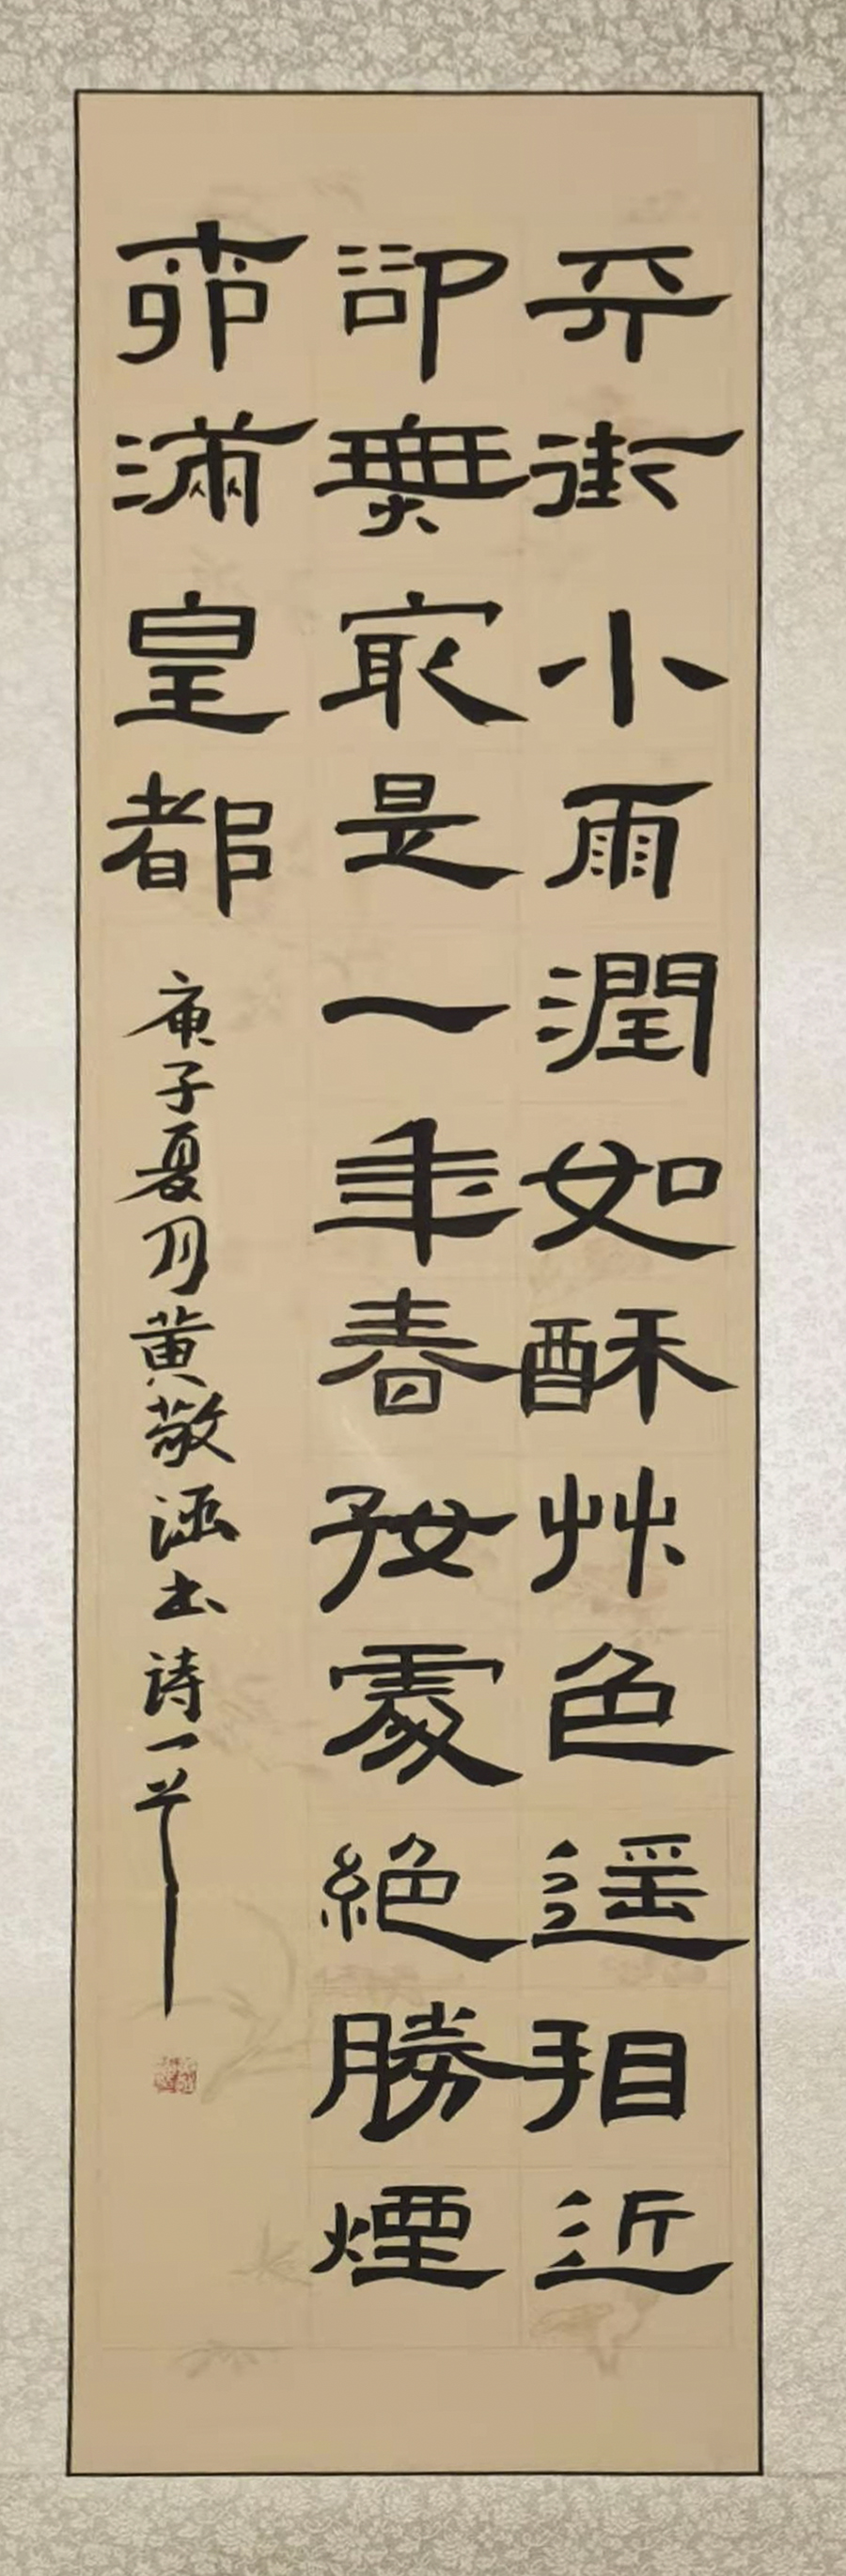 天街小雨潤如酥艸色遥看近
卻無冣是一年春好處絕勝煙
柳滿皇都
庚子夏月黄敬涵书诗一首